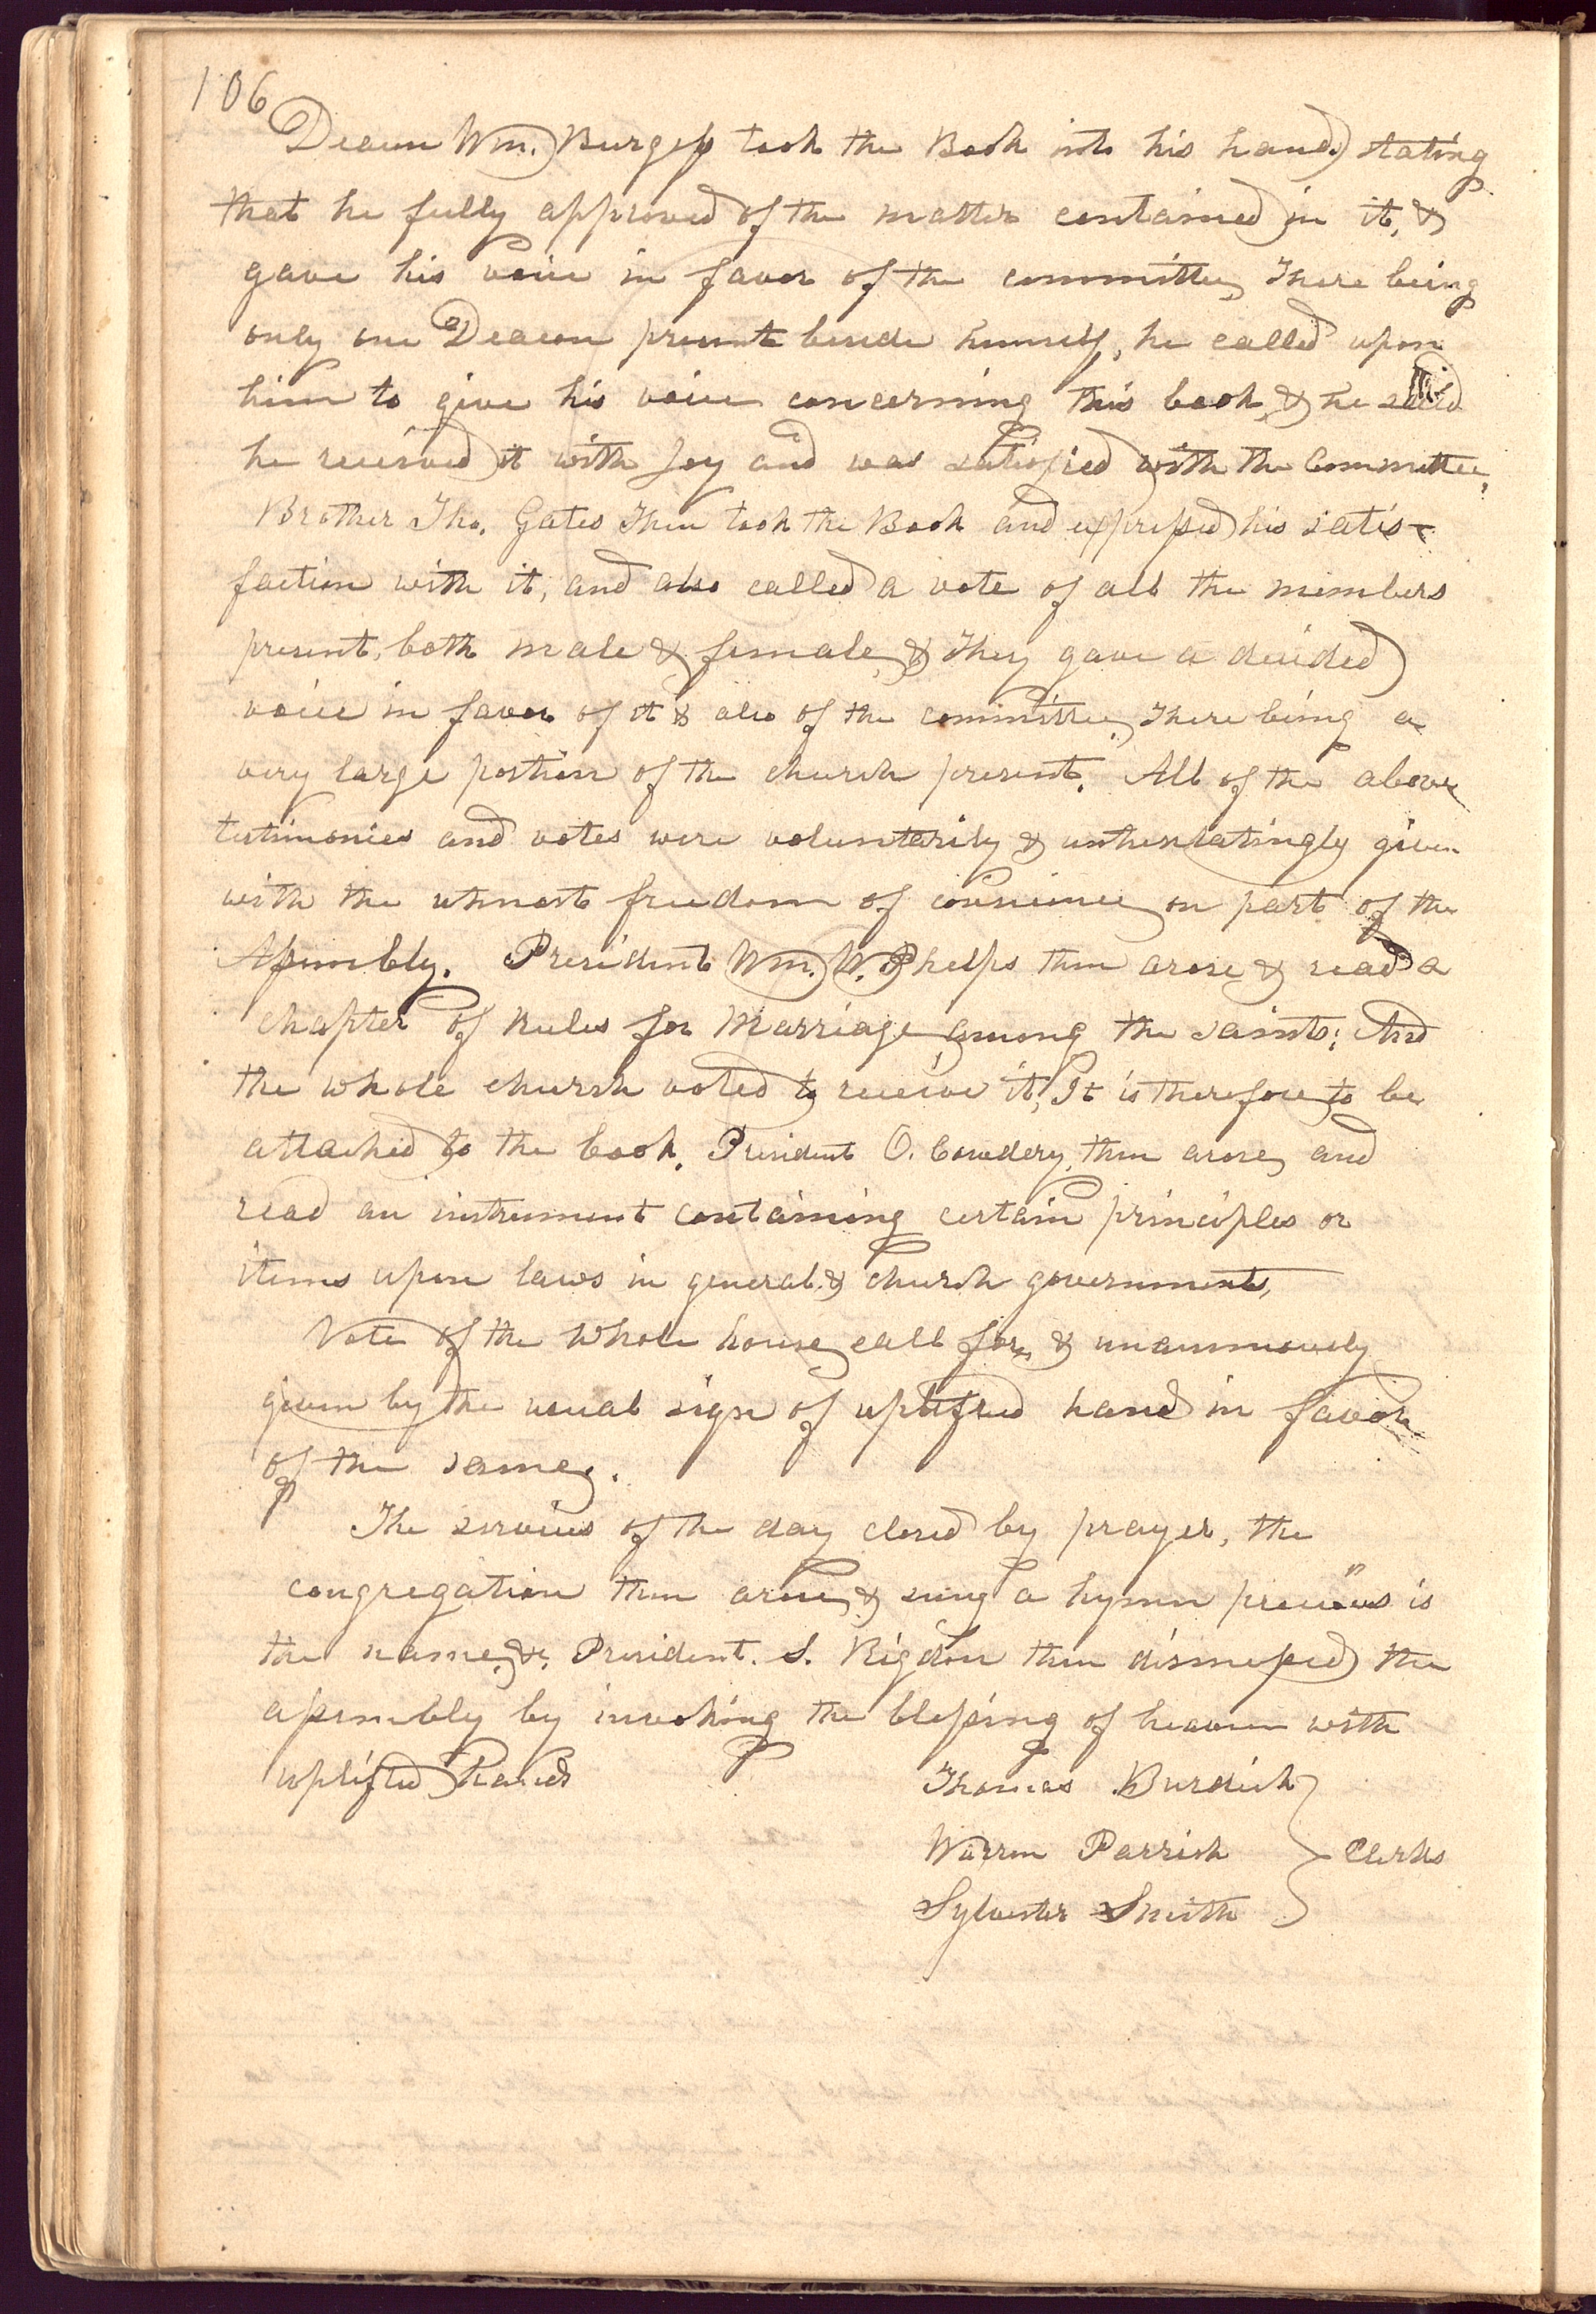 106
Deacon Wm. Burgess took the Book into his hand, stating
that he fully approved of the matter contained in it, &
gave his voice in favor of the committee, There being
only one Deacon present beside himself, he called upon
him to give his voice concerning this book, & he said
he received it with Joy and was satisfied with the Committee,
Brother Tho. Gates Then took the Book and expressed his satis-
faction with it, and also called a vote of all the members
present, both male & female, & They gave a decided
voice in favor of it & also of the committee, There being a
very large portion of the church present. All of the above
testimonies and votes were voluntarily & unhesitatingly given
with the utmost freedom of conscience on part of the
Assembly. President Wm. W. Phelps then arose & read a
chapter of Rules for Marriage among the saints; And
the whole church voted to receive it, It is therefore to be
attached to the book. President O. Cowdery, then arose, and
read an instrument containing certain principles or
items upon laws in general & church government,
Vote of the Whole house call for, & unanimously
given by the usual sign of uplifted hand in favor
of the same.
The services of the day closed by prayer, the
congregation then arose, & sung a hymn "precious is
the name, &c, President. S. Rigdon then dismissed the
assembly by invoking the blessing of heaven with
uplifted hands
Thomas Burdick
Warren Parrish } Clerks
Sylvester Smith